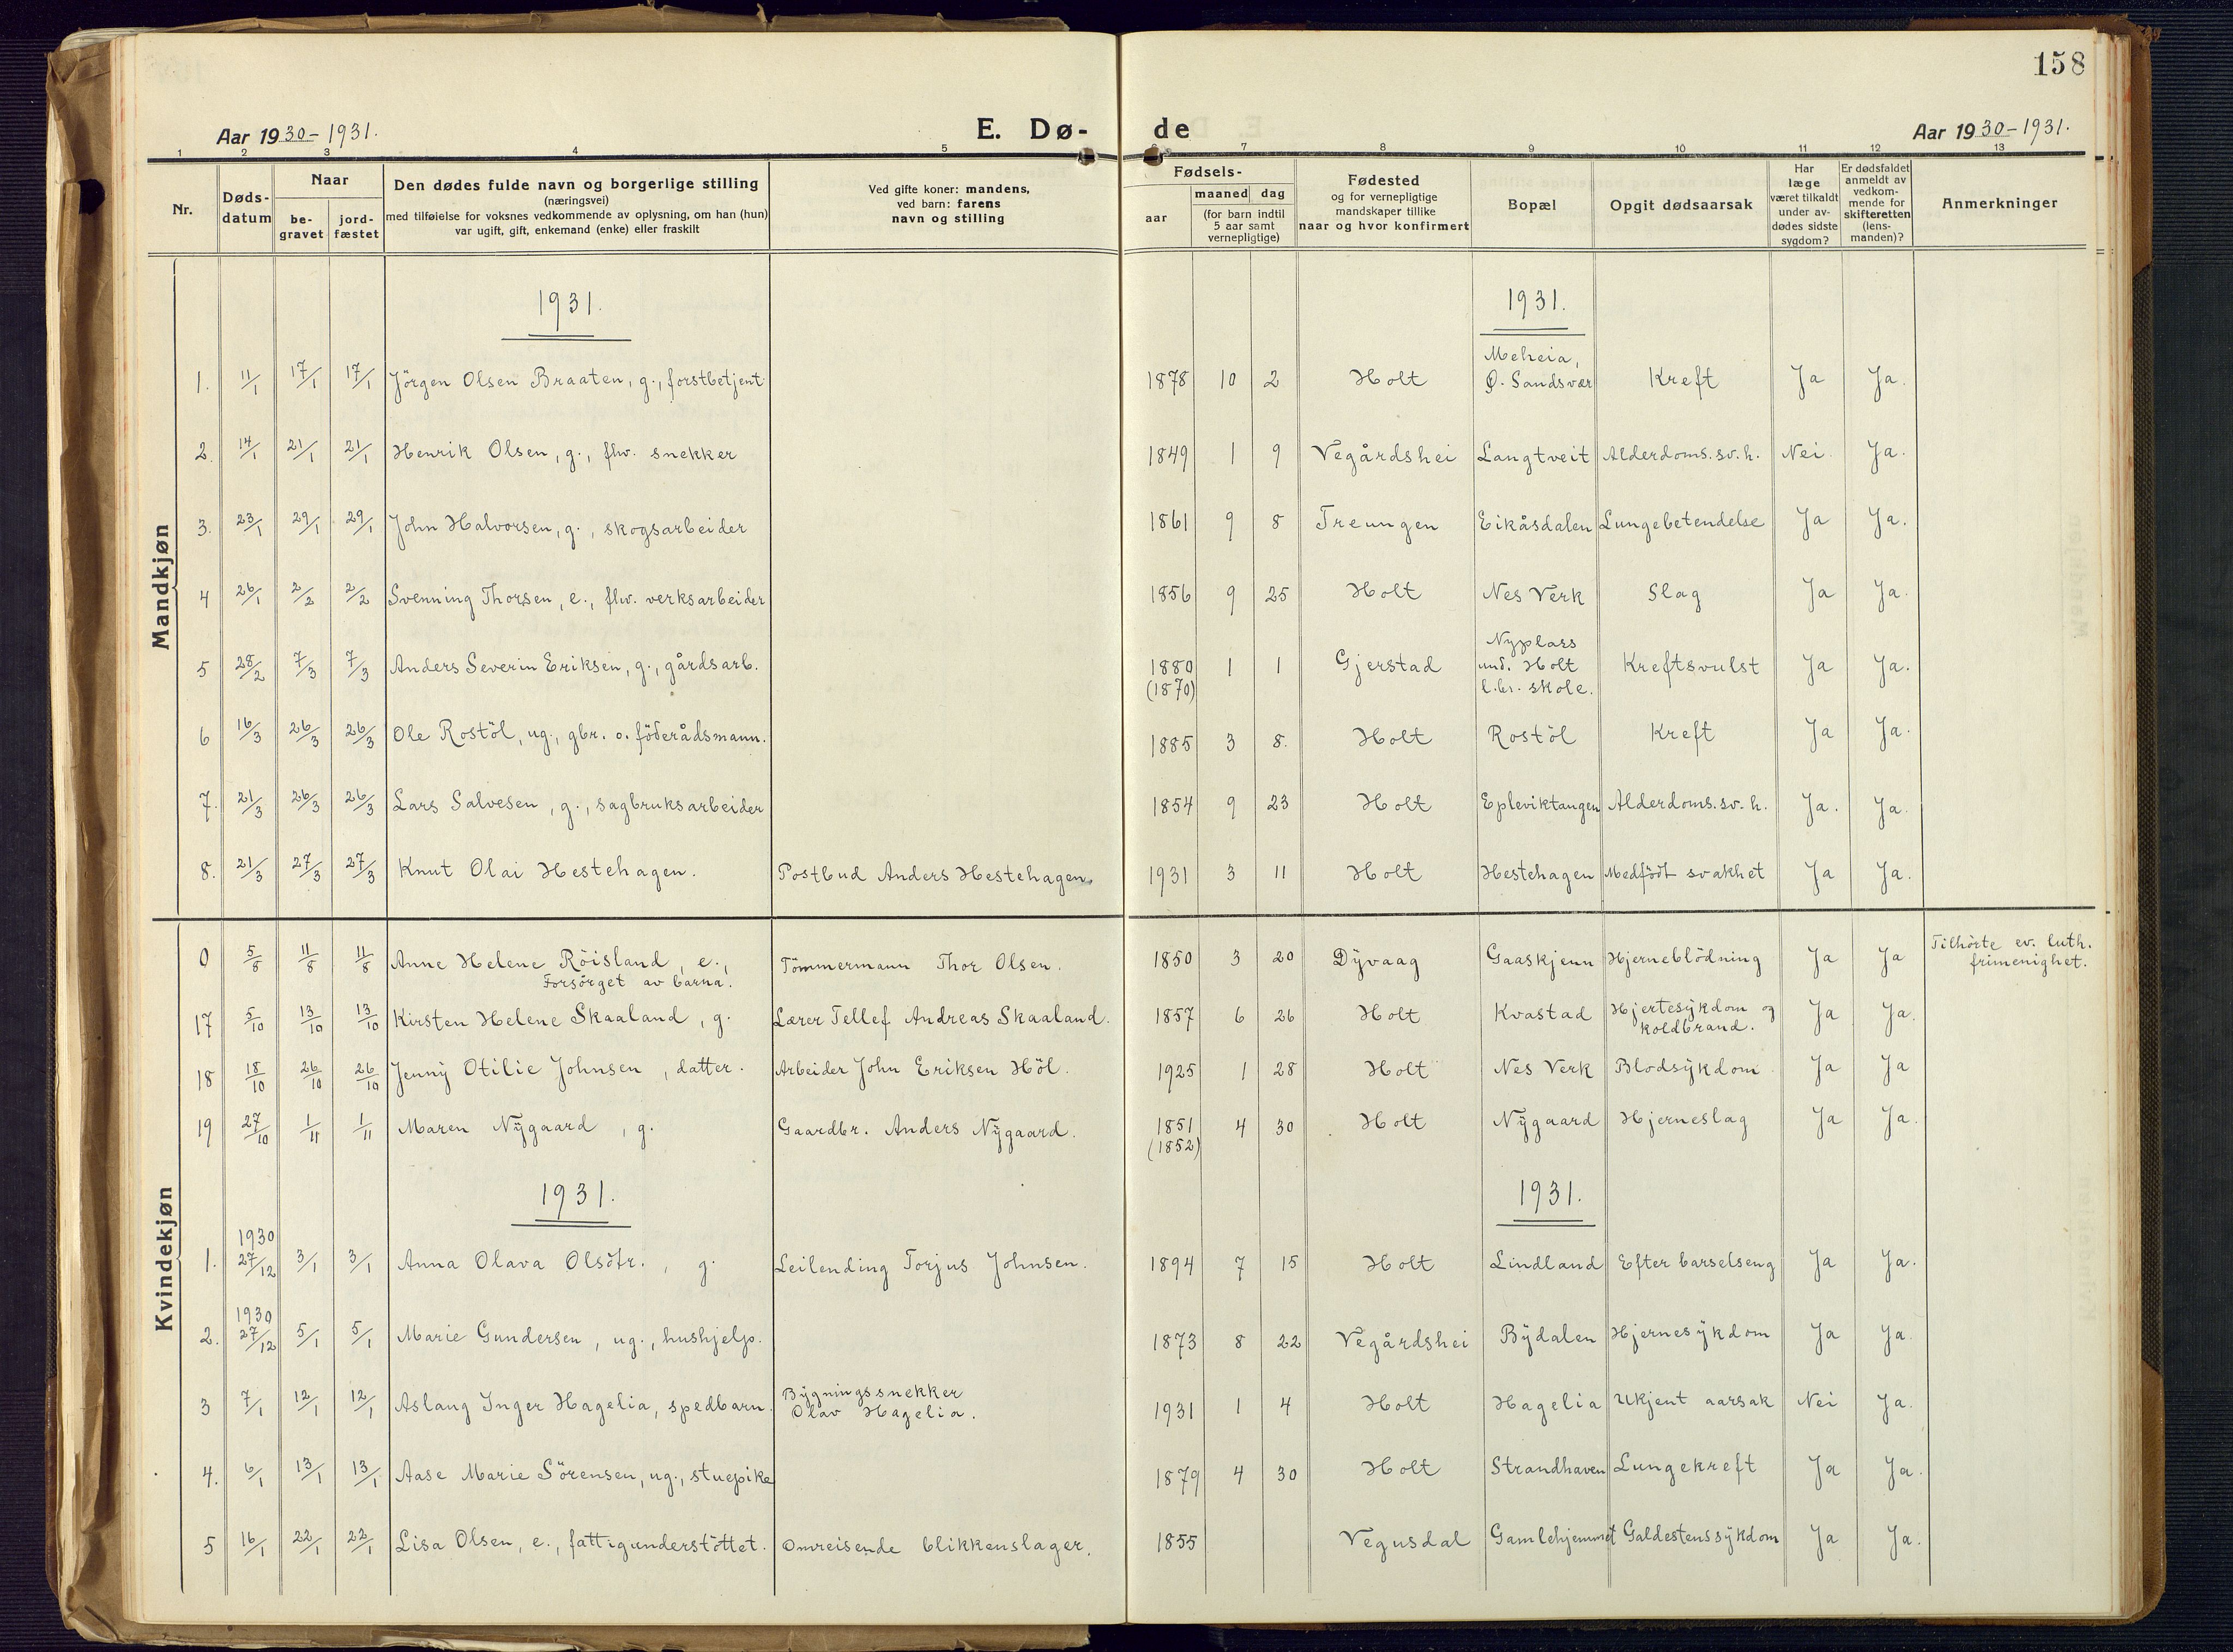 158
Aar 1930-1931.
E. Dø-
de
Aar 1930-1931.
1 2 3 4 5 6 7 8 9 10 11 12 13
Nr.
Døds-
datum
Naar
be-
gravet
jord-
fæstet
Den dødes fulde navn og borgerlige stilling
(næringsvei)
med tilføielse for voksnes vedkommende av oplysning, om han (hun)
var ugift, gift, enkemand (enke) eller fraskilt
Ved gifte koner: mandens,
ved barn: farens
navn og stilling
Fødsels-
aar
maaned dag
(for barn indtil
5 aar samt
vernepligtige)
Fødested
og for vernepligtige
mandskaper tillike
naar og hvor konfirmert
Bopæl
Opgit dødsaarsak
Har
læge
været tilkaldt
under av-
dødes sidste
sygdom?
Er dødsfaldet
anmeldt av
vedkom-
mende for
skifteretten
(lens-
manden)?
Anmerkninger
Mandkjøn
1931. 1931.
1. 11/1 17/1 17/1 Jörgen Olsen Braaten, g., forstbetjent 1878 10 2 Holt Meheia, Ø. Sandsvær Kreft Ja Ja.
2. 14/1 21/1 21/1 Henrik Olsen, g., fhv. snekker 1849 1 9 Vegårdshei Langtveit Alderdoms.sv.h. Nei. Ja.
3. 23/1 29/1 29/1 John Halvorsen, g., skogsarbeider 1861 9 8 Treungen Eikåsdalen Lungebetendelse Ja Ja.
4 26/1 2/2 2/2 Svenning Thorsen, e., fhv. verksarbeider 1856 9 25 Holt Nes Verk Slag Ja Ja.
5 28/2 7/3 7/3 Anders Severin Eriksen, g., gårdsarb. 1880 (1870) 1 1 Gjerstad Nyplass und. Holt l.br. skole. Kreftsvulst Ja Ja.
6 16/3 26/3 26/3 Ole Rostöl, ug., gbr. o. föderådsmann. 1885 3 8. Holt Rostöl Kreft Ja Ja.
7. 21/3 26/3 26/3 Lars Salvesen, g., sagbruksarbeider 1854 9 23 Holt Epleviktangen Alderdoms.sv.h. Ja. Ja.
8. 21/3 27/3 27/3 Knut Olai Hestehagen. Postbud Anders Hestehagen. 1931 3 11 Holt Hestehagen Medfödt svakhet Ja Ja.
Kvindekjøn
0 5/8 11/8 11/8 Anne Helene Röisland, e., Forsörget av barna. Tömmermann Thor Olsen. 1850 3 20 Dyvaag Gaaskjenn Hjerneblödning Ja Ja Tilhörte ev. luth. frimenighet.
17 5/10 13/10 13/10 Kirsten Helene Skaaland, g. Lærer Tellef Andreas Skaaland. 1857 6 26 Holt Kvastad Hjertesykdom og koldbrand. Ja Ja.
18 18/10 26/10 26/10 Jenny Otilie Johnsen, datter. Arbeider John Eriksen Höl. 1925 1 28 Holt Nes Verk Blodsykdom Ja Ja
19 27/10 1/11 1/11 Maren Nygaard, g. Gaardbr. Anders Nygaard. 1851 (1852) 4 30 Holt Nygaard Hjerneslag Ja Ja.
1931. 1931.
1. 1930 27/12 3/1 3/1 Anna Olava Olsdtr., g. Leilending Torjus Johnsen. 1894 7 15 Holt Lindland Efter barselseng Ja Ja.
2. 1930 27/12 5/1 5/1 Marie Gundersen, ug., hushjelp. 1873 8 22 Vegårdshei Bydalen Hjernesykdom Ja Ja.
3 7/1 12/1 12/1 Aslaug Inger Hagelia, spedbarn. Bygningssnekker Olav Hagelia. 1931 1 4 Holt Hagelia Ukjent aarsak Nei Ja.
4. 6/1 13/1 13/1 Aase Marie Sörensen, ug., stuepike 1879 4 30 Holt Strandhaven Lungekreft Ja Ja.
5 16/1 22/1 22/1 Lisa Olsen, e., fattigunderstöttet. Omreisende blikkenslager. 1855 Vegusdal Gamlehjemmet Galdestenssykdom Ja Ja.